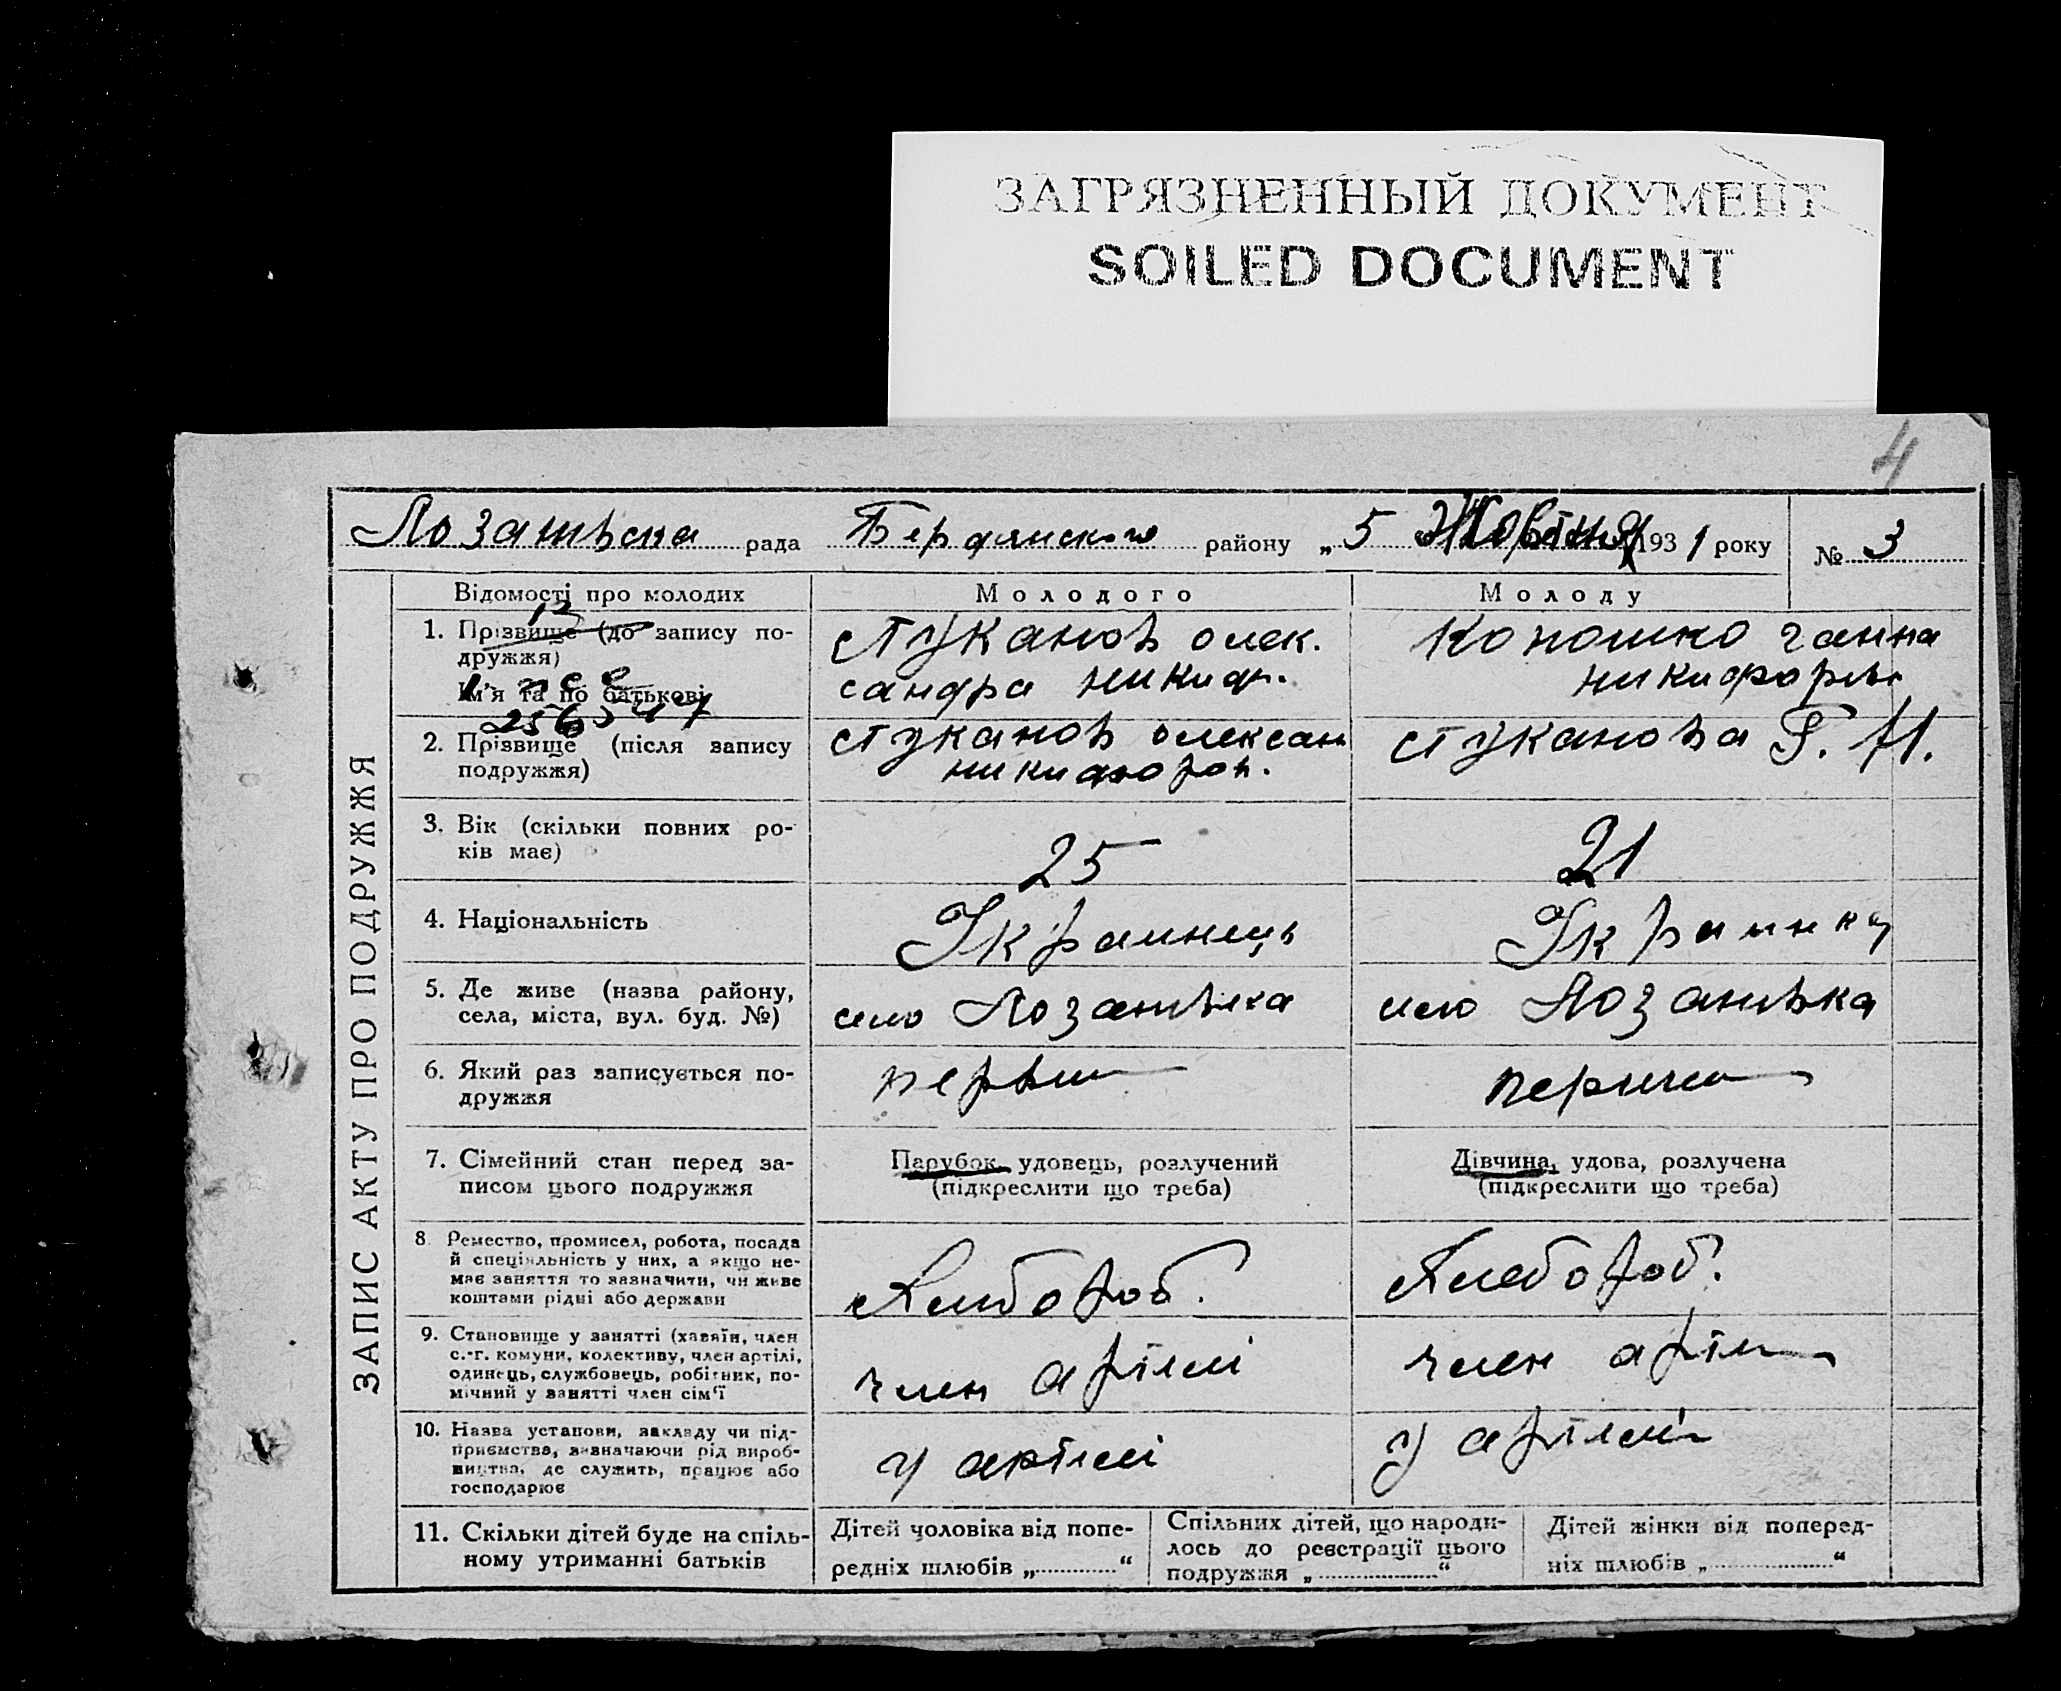 ЗАГРЯЗНЕННЫЙ ДОКУМЕНТ
SOILED DOCUMENT
4
рада Бердянского району „5 Жовтня 1931 року № 3
ЗАПИС АКТУ ПРО ПОДРУЖЖЯ
Відомості про молодих
Молодого
Молоду
1. Прізвище (до запису по-
дружжя)
Ім'я та по батькові
стуканов олек.
сандра никиф.
ганна
2. Прізвище (після запису
подружжя)
стуканов олексан
никифоров.
стуканова Г. Н.
3. Вік (скільки повних ро-
ків має)
25
21
4. Національність
Украинець
Украинка
5. Де живе (назва району,
села, міста, вул. буд. №)
село Лозанівка
село Лозанівка
6. Який раз записується по-
дружжя
7. Сімейний стан перед за-
писом цього подружжя
Парубок, удовець, розлучений
(підкреслити що треба)
Дівчина, удова, розлучена
(підкреслити що треба)
8. Ремество, промисел, робота, посада
й спеціяльність у них, а якщо не-
має заняття то зазначити, чи живе
коштами рідні або держави
Хлибороб.
Хлебороб.
9. Становище у занятті (хазяїн, член
с.-г. комуни, колективу, член артілі,
одинець, службовець, робітник, по-
мічний у занятті член сім'ї
член артілі
член
10. Назва установи, закладу чи під-
приємства, зазначаючи рід вироб-
ництва, де служить, працює або
господарює
у артілі
у артілі
11. Скільки дітей буде на спіль-
ному утриманні батьків
Дітей чоловіка від попе-
редніх шлюбів „..............“
Спільних дітей, що народи-
лось до реєстрації цього
подружжя „....................“
Дітей жінки від поперед-
ніх шлюбів „....................“